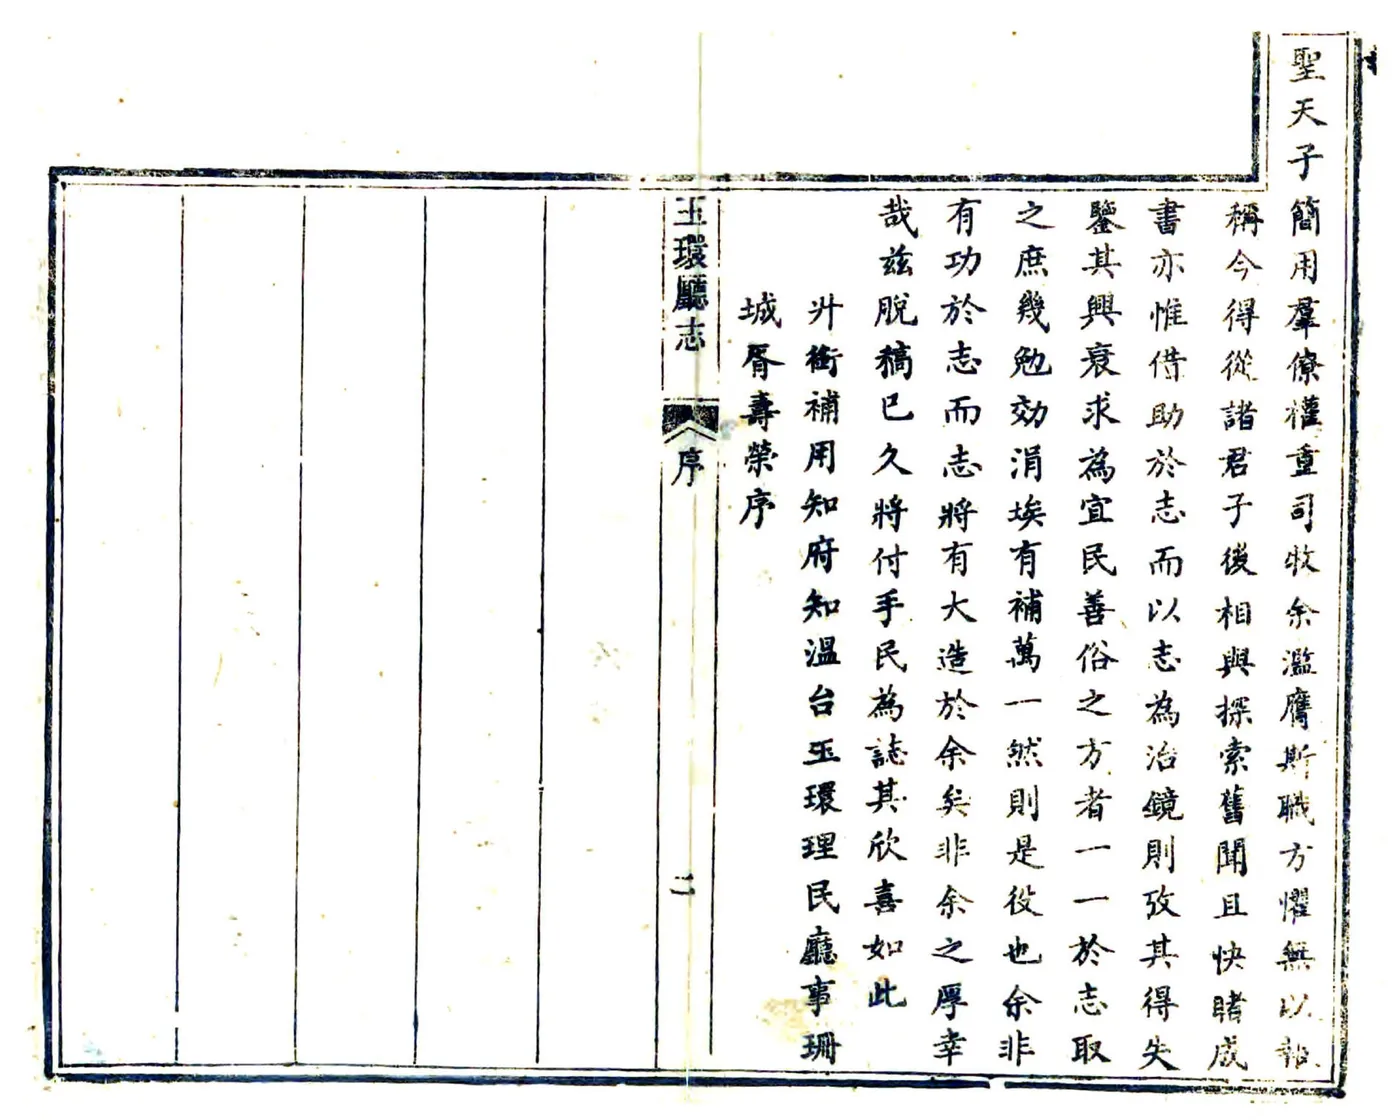 聖天子簡用羣僚權重司牧余濫膺斯職方懼無以報
稱今得從諸君子後相與探索舊聞且快睹成
書亦惟借助於志而以志為治鏡則攷其得失
鑒其興衰求為宜民善俗之方者一一於志取
之庶幾勉効涓埃有補萬一然則是役也余非
有功於志而志將有大造於余矣非余之厚幸
哉茲脫稿已久將付手民為誌其欣喜如此
升銜補用知府知溫台玉環理民廳事珊
城胥壽榮序
玉環廳志
序
二